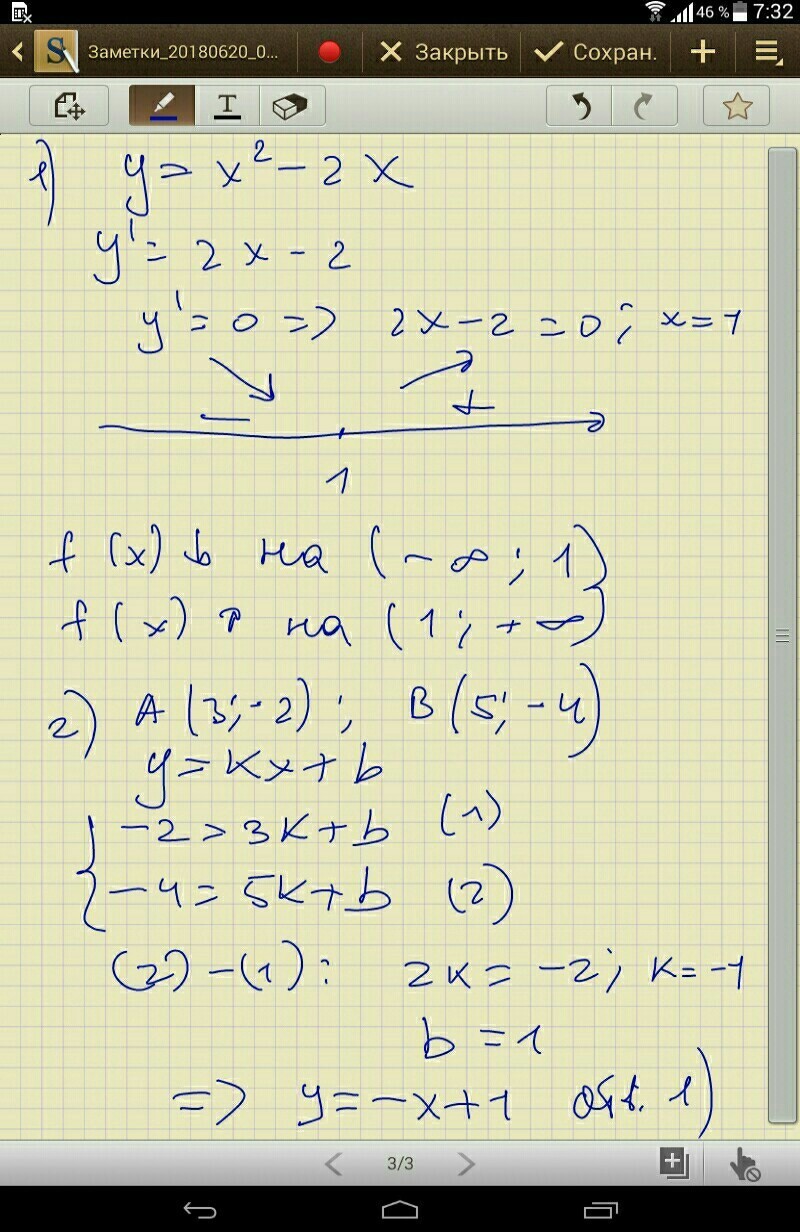 46 % 7:32
Заметки_20180620_0... Закрыть Сохран.
T
1) y = x² - 2x
y' = 2x - 2
y' = 0 => 2x - 2 = 0; x = 1
- +
1
f(x) ↓ на (-∞; 1)
f(x) ↑ на (1; +∞)
2) A(3; -2); B(5; -4)
y = kx + b
{ -2 = 3k + b (1)
-4 = 5k + b (2)
(2) - (1): 2k = -2; k = -1
b = 1
=> y = -x + 1 отв. 1)
3/3